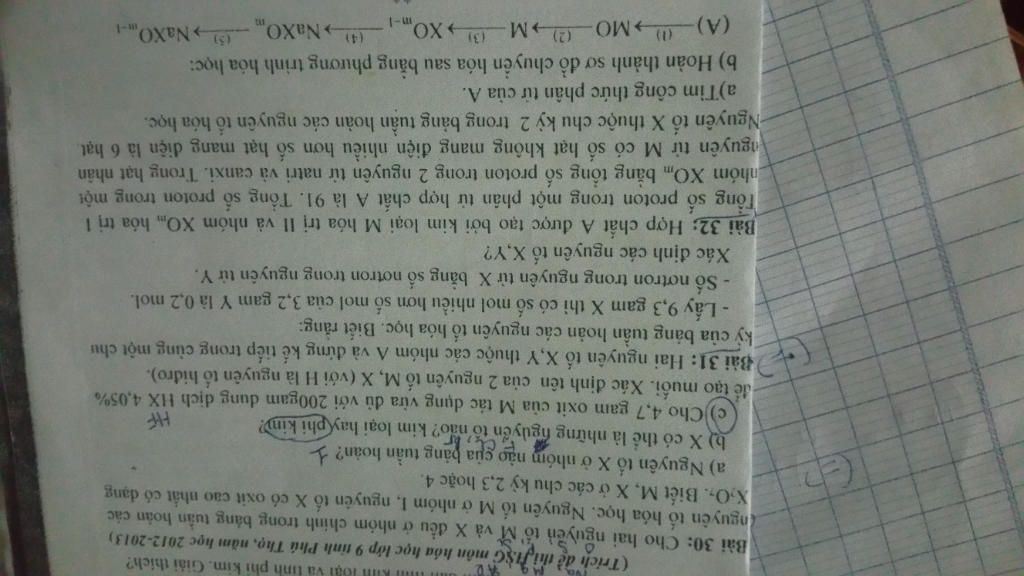 tính kim loại và tính phi kim. Giải thích?
(Trích đề thi HSG môn hóa học lớp 9 tỉnh Phú Thọ, năm học 2012-2013)
Bài 30: Cho hai nguyên tố M và X đều ở nhóm chính trong bảng tuần hoàn các
nguyên tố hóa học. Nguyên tố M ở nhóm I, nguyên tố X có oxit cao nhất có dạng
X₂O₇. Biết M, X ở các chu kỳ 2,3 hoặc 4.
a) Nguyên tố X ở nhóm nào của bảng tuần hoàn?
b) X có thể là những nguyên tố nào? kim loại hay phi kim?
HF
c) Cho 4,7 gam oxit của M tác dụng vừa đủ với 200gam dung dịch HX 4,05%
để tạo muối. Xác định tên của 2 nguyên tố M, X (với H là nguyên tố hiđro).
Bài 31: Hai nguyên tố X,Y thuộc các nhóm A và đứng kế tiếp trong cùng một chu
kỳ của bảng tuần hoàn các nguyên tố hóa học. Biết rằng:
- Lấy 9,3 gam X thì có số mol nhiều hơn số mol của 3,2 gam Y là 0,2 mol.
- Số nơtron trong nguyên tử X bằng số nơtron trong nguyên tử Y.
Xác định các nguyên tố X,Y?
Bài 32: Hợp chất A được tạo bởi kim loại M hóa trị II và nhóm XOₘ hóa trị I
Tổng số proton trong một phân tử hợp chất A là 91. Tổng số proton trong một
nhóm XOₘ bằng tổng số proton trong 2 nguyên tử natri và canxi. Trong hạt nhân
nguyên tử M có số hạt không mang điện nhiều hơn số hạt mang điện là 6 hạt.
Nguyên tố X thuộc chu kỳ 2 trong bảng tuần hoàn các nguyên tố hóa học.
a)Tìm công thức phân tử của A.
b) Hoàn thành sơ đồ chuyển hóa sau bằng phương trình hóa học:
(A) —(1)→ MO —(2)→ M —(3)→ XOₘ₋₁ —(4)→ NaXOₘ —(5)→ NaXOₘ₋₁